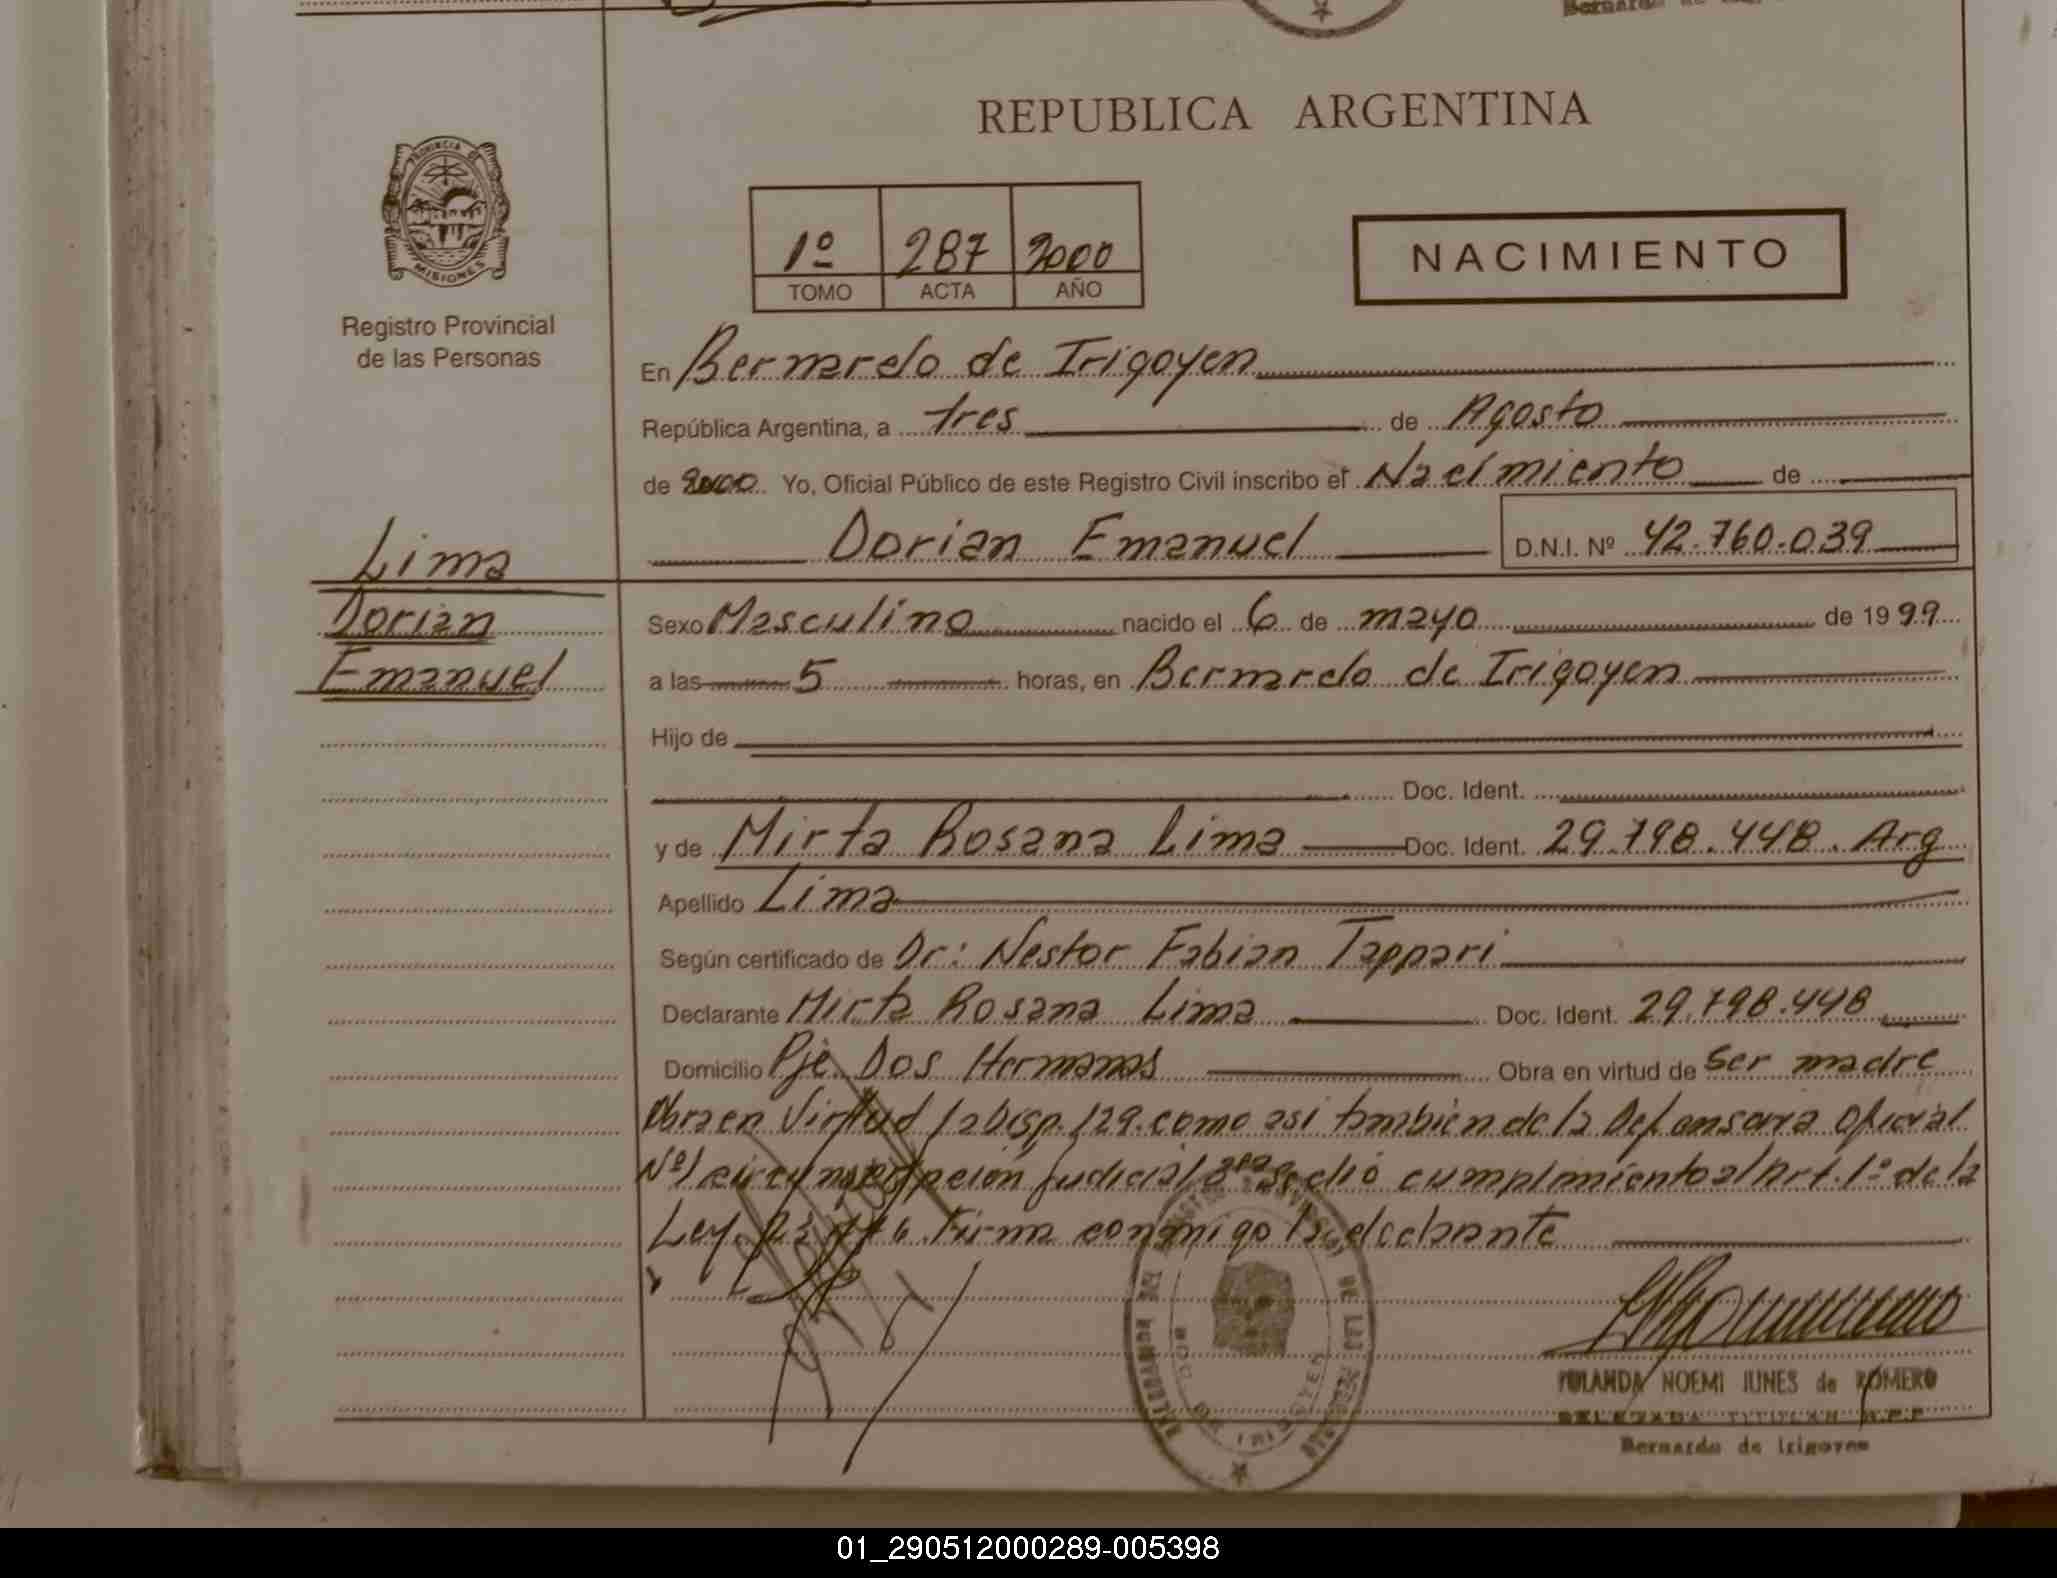 Bernardo de Irigoyen
REPUBLICA ARGENTINA
PROVINCIA DE
MISIONES
Registro Provincial
de las Personas
1º 287 2000
TOMO ACTA AÑO
NACIMIENTO
En Bernardo de Irigoyen
República Argentina, a tres de Agosto
de 2000 Yo, Oficial Público de este Registro Civil inscribo el Nacimiento de
Dorian Emanuel D.N.I. Nº 42.760.039
Lima
Dorian
Emanuel
Sexo Masculino nacido el 6 de mayo de 1999
a las 5 horas, en Bernardo de Irigoyen
Hijo de
Doc. Ident.
y de Mirta Rosana Lima Doc. Ident. 29.798.448. Arg
Apellido Lima
Según certificado de Dr: Nestor Fabian Tappari
Declarante Mirta Rosana Lima Doc. Ident. 29.798.448
Domicilio Pje. Dos Hermanas Obra en virtud de Ser madre
Obra en Virtud la Disp. 129. como asi tambien de la Defensoria Oficial
Nº1 circunscripcion Judicial se dió cumplimiento al Art. 1º de la
Ley. Firma conmigo la declarante
YOLANDA NOEMI JUNES de ROMERO
DELEGADA TITULAR R.P.P
Bernardo de Irigoyen
01_290512000289-005398